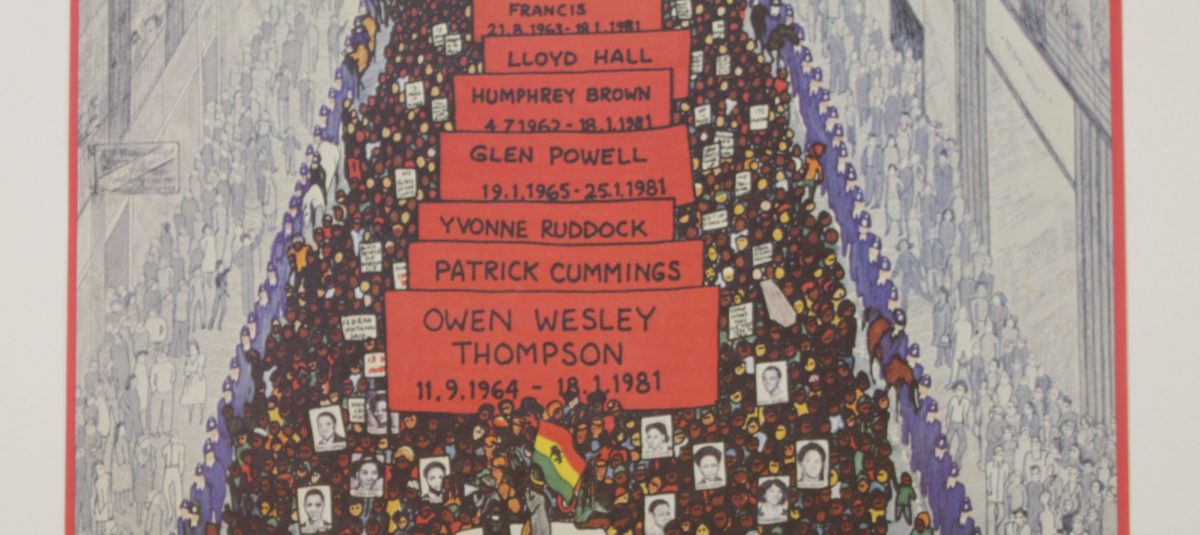 FRANCIS
21.8.1963-18.1.1981
LLOYD HALL
HUMPHREY BROWN
4.7.1962-18.1.1981
GLEN POWELL
19.1.1965-25.1.1981
YVONNE RUDDOCK
PATRICK CUMMINGS
OWEN WESLEY
THOMPSON
11.9.1964 - 18.1.1981
13 DEAD
NOTHING
SAID